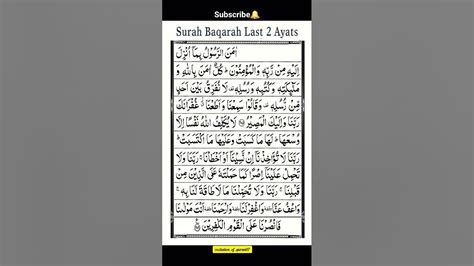 Subscribe🔔
Surah Baqarah Last 2 Ayats
اٰمَنَ الرَّسُوْلُ بِمَاۤ اُنْزِلَ
اِلَيْهِ مِنْ رَّبِّهٖ وَالْمُؤْمِنُوْنَ ؕ كُلٌّ اٰمَنَ بِاللّٰهِ وَ
مَلٰٓئِكَتِهٖ وَكُتُبِهٖ وَرُسُلِهٖ ۟ لَا نُفَرِّقُ بَيْنَ اَحَدٍ
مِّنْ رُّسُلِهٖ ۟ وَقَالُوْا سَمِعْنَا وَاَطَعْنَا ۫ غُفْرَانَكَ
رَبَّنَا وَاِلَيْكَ الْمَصِيْرُ ۝ لَا يُكَلِّفُ اللّٰهُ نَفْسًا اِلَّا
وُسْعَهَا ؕ لَهَا مَا كَسَبَتْ وَعَلَيْهَا مَا اكْتَسَبَتْ ؕ
رَبَّنَا لَا تُؤَاخِذْنَاۤ اِنْ نَّسِيْنَاۤ اَوْ اَخْطَاْنَا ۚ رَبَّنَا وَلَا
تَحْمِلْ عَلَيْنَاۤ اِصْرًا كَمَا حَمَلْتَهٗ عَلَى الَّذِيْنَ مِنْ
قَبْلِنَا ۚ رَبَّنَا وَلَا تُحَمِّلْنَا مَا لَا طَاقَةَ لَنَا بِهٖ ۚ
وَاعْفُ عَنَّا ۟ وَاغْفِرْلَنَا ۟ وَارْحَمْنَا ۟ اَنْتَ مَوْلٰىنَا
فَانْصُرْنَا عَلَى الْقَوْمِ الْكٰفِرِيْنَ ۝